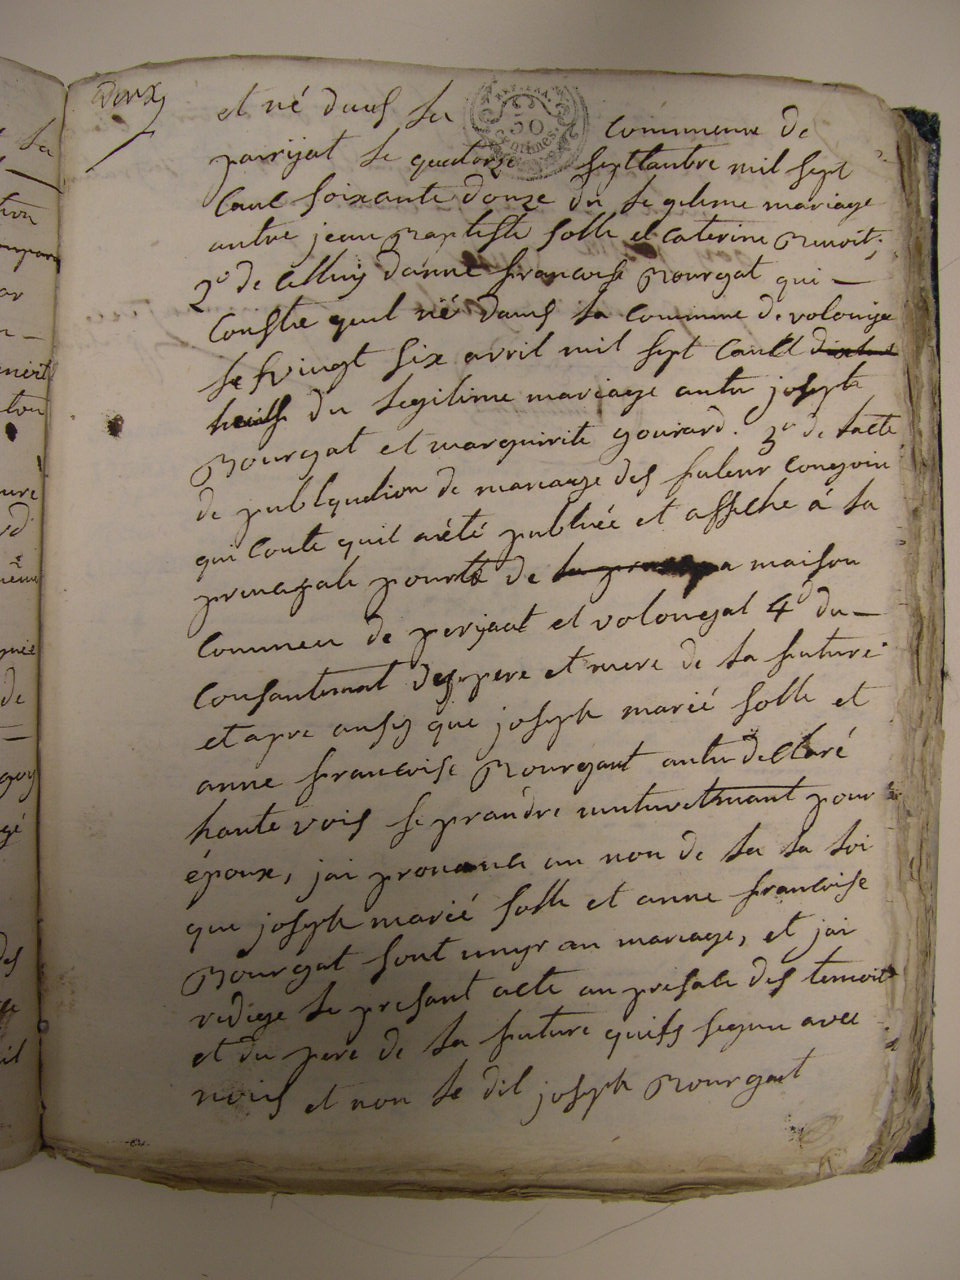 Deux
et né dans la communeue de
pairijat le quatorze septtanbre mil sept
Cant soixante douze du legitime mariage
antre jean Baptiste Solle et Caterine Benoit;
2º de Celluy danne francoise Bourgat qui —
Constte quil né dans la commune de volongat
le vingt six avril mil sept Cant
du legitime mariage antre joseph
Bourgat et marguirite gouiard. 3º de lacte
de publiquation de mariauge des futeur Conjoin
qui Conte quil aété publiée et affiche á la
principale pourte de la maison
Commeu de perijaat et volongat 4º du —
Consantemat des pere et mere de la future
et apre ansy que joseph marié Solle et
anne francoise Bourgaut antu declaré
haute vois se prandre muturetmant pour
époux, jai pronance au non de la la loi
que joseph marié Solle et anne francoise
Bourgat sont unys an mariage, et jai
redige le presant acte an presace des temoit
et du pere de la future quils segnu avec
nous et non le dit joseph Bourgaat
50
Centimes.